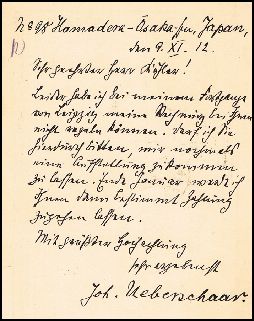 No 98 Hamadera-Ōsaka fu, Japan,
den 9. XI. 12.
Sehr geehrter Herr Köhler!
Leider habe ich bei meinem Fortgange
von Leipzig meine Rechnung bei Ihnen
nicht regeln können. Darf ich Sie
hierdurch bitten, mir nochmals
eine Aufstellung zukommen
zu lassen. Ende Januar werde ich
Ihnen dann bestimmt Zahlung
zugehen lassen.
Mit größter Hochachtung
sehr ergebenst
Joh. Ueberschaar.